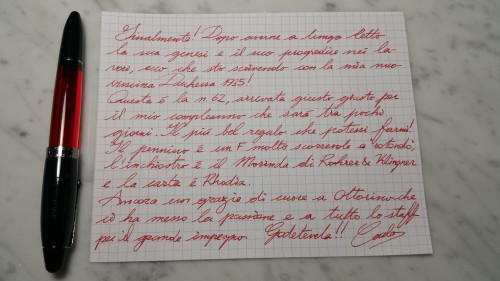 Finalmente! Dopo avere a lungo letto
la sua genesi e il suo progredire nei la-
vori, ecco che sto scrivendo con la mia nuo-
vissima Duchessa 1985!
Questa è la n. 62, arrivata giusto giusto per
il mio compleanno che sarà tra pochi
giorni. Il più bel regalo che potessi farmi!
Il pennino è un F molto scorrevole e rotondo,
l'inchiostro è il Morinda di Rohrer & Klingner
e la carta è Rhodia.
Ancora un grazie di cuore a Ottorino che
ci ha messo la passione e a tutto lo staff
per il grande impegno. Godetevela!!